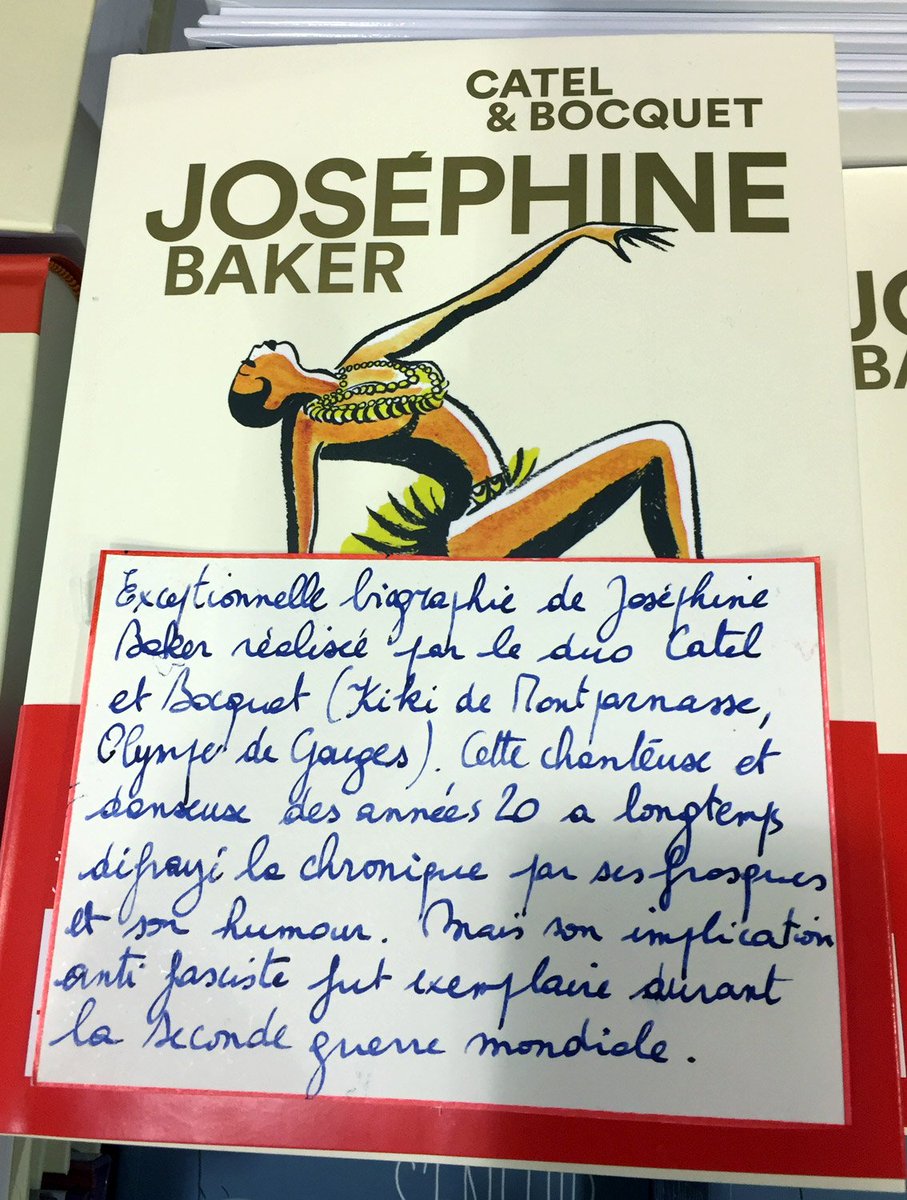 CATEL
& BOCQUET
JOSÉPHINE
BAKER
JO
BA
Exceptionnelle biographie de Joséphine
Baker réalisée par le duo Catel
et Bocquet (Kiki de Montparnasse,
Olympe de Gouges). Cette chanteuse et
danseuse des années 20 a longtemps
défrayé la chronique par ses frasques
et son humour. Mais son implication
anti fasciste fut exemplaire durant
la seconde guerre mondiale.